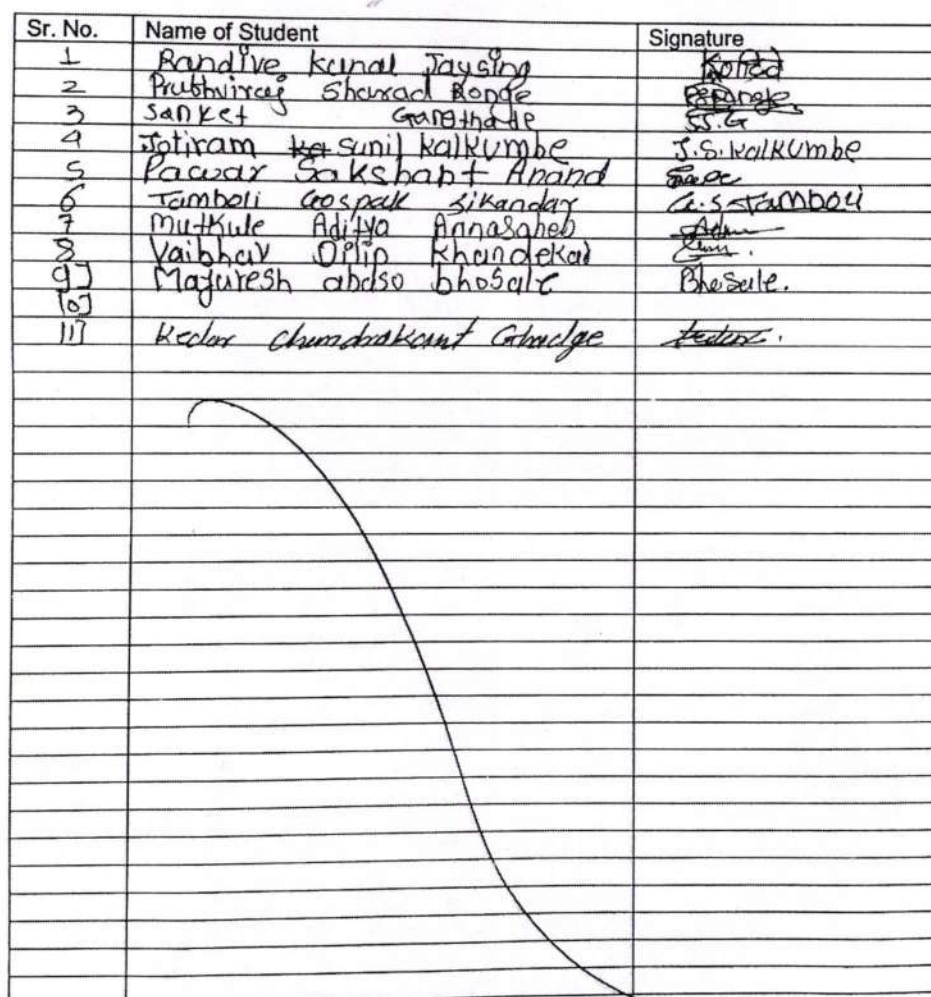 Sr. No. Name of Student Signature
1 Randive kunal Jaysing
2 Pruthviraj Sharad Ronge
3 Sanket Garathade S.G
4 Jotiram sunil kalkumbe J.S.kalkumbe
5 Pawar Sakshant Anand
6 Tamboli Gospak Sikandar G.S.Tamboli
7 Mutkule Aditya Annasaheb
8 Vaibhav Dilip Khandekar
9] Mayuresh abaso bhosale Bhosale.
10]
11] Kedar Chandrakant Ghadge Kedar.